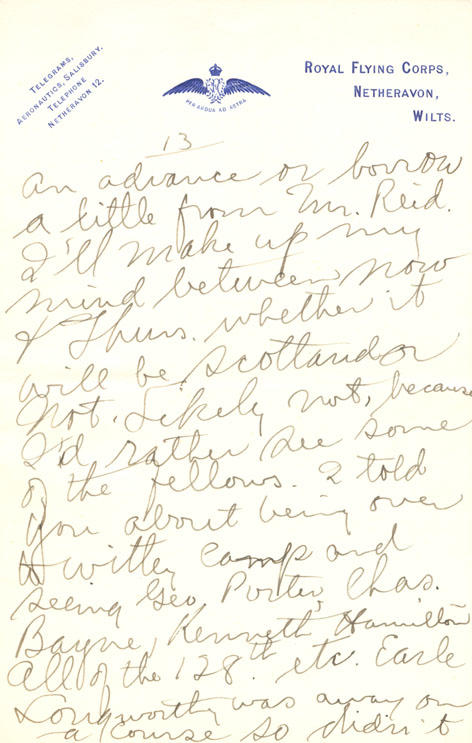 TELEGRAMS,
AERONAUTICS, SALISBURY.
TELEPHONE
NETHERAVON 12.
PER ARDUA AD ASTRA
ROYAL FLYING CORPS,
NETHERAVON,
WILTS.
13
an advance or borrow
a little from Mr. Reid.
I'll make up my
mind between now
& Thurs. whether it
will be Scotland or
not. Likely not, because
I'd rather see some
of the fellows. I told
you about being over
to Witley Camp and
seeing Geo Porter, Chas.
Bayne, Kenneth Hamilton
All of the 128th. etc. Earle
Longworthy was away on
a course so didn't